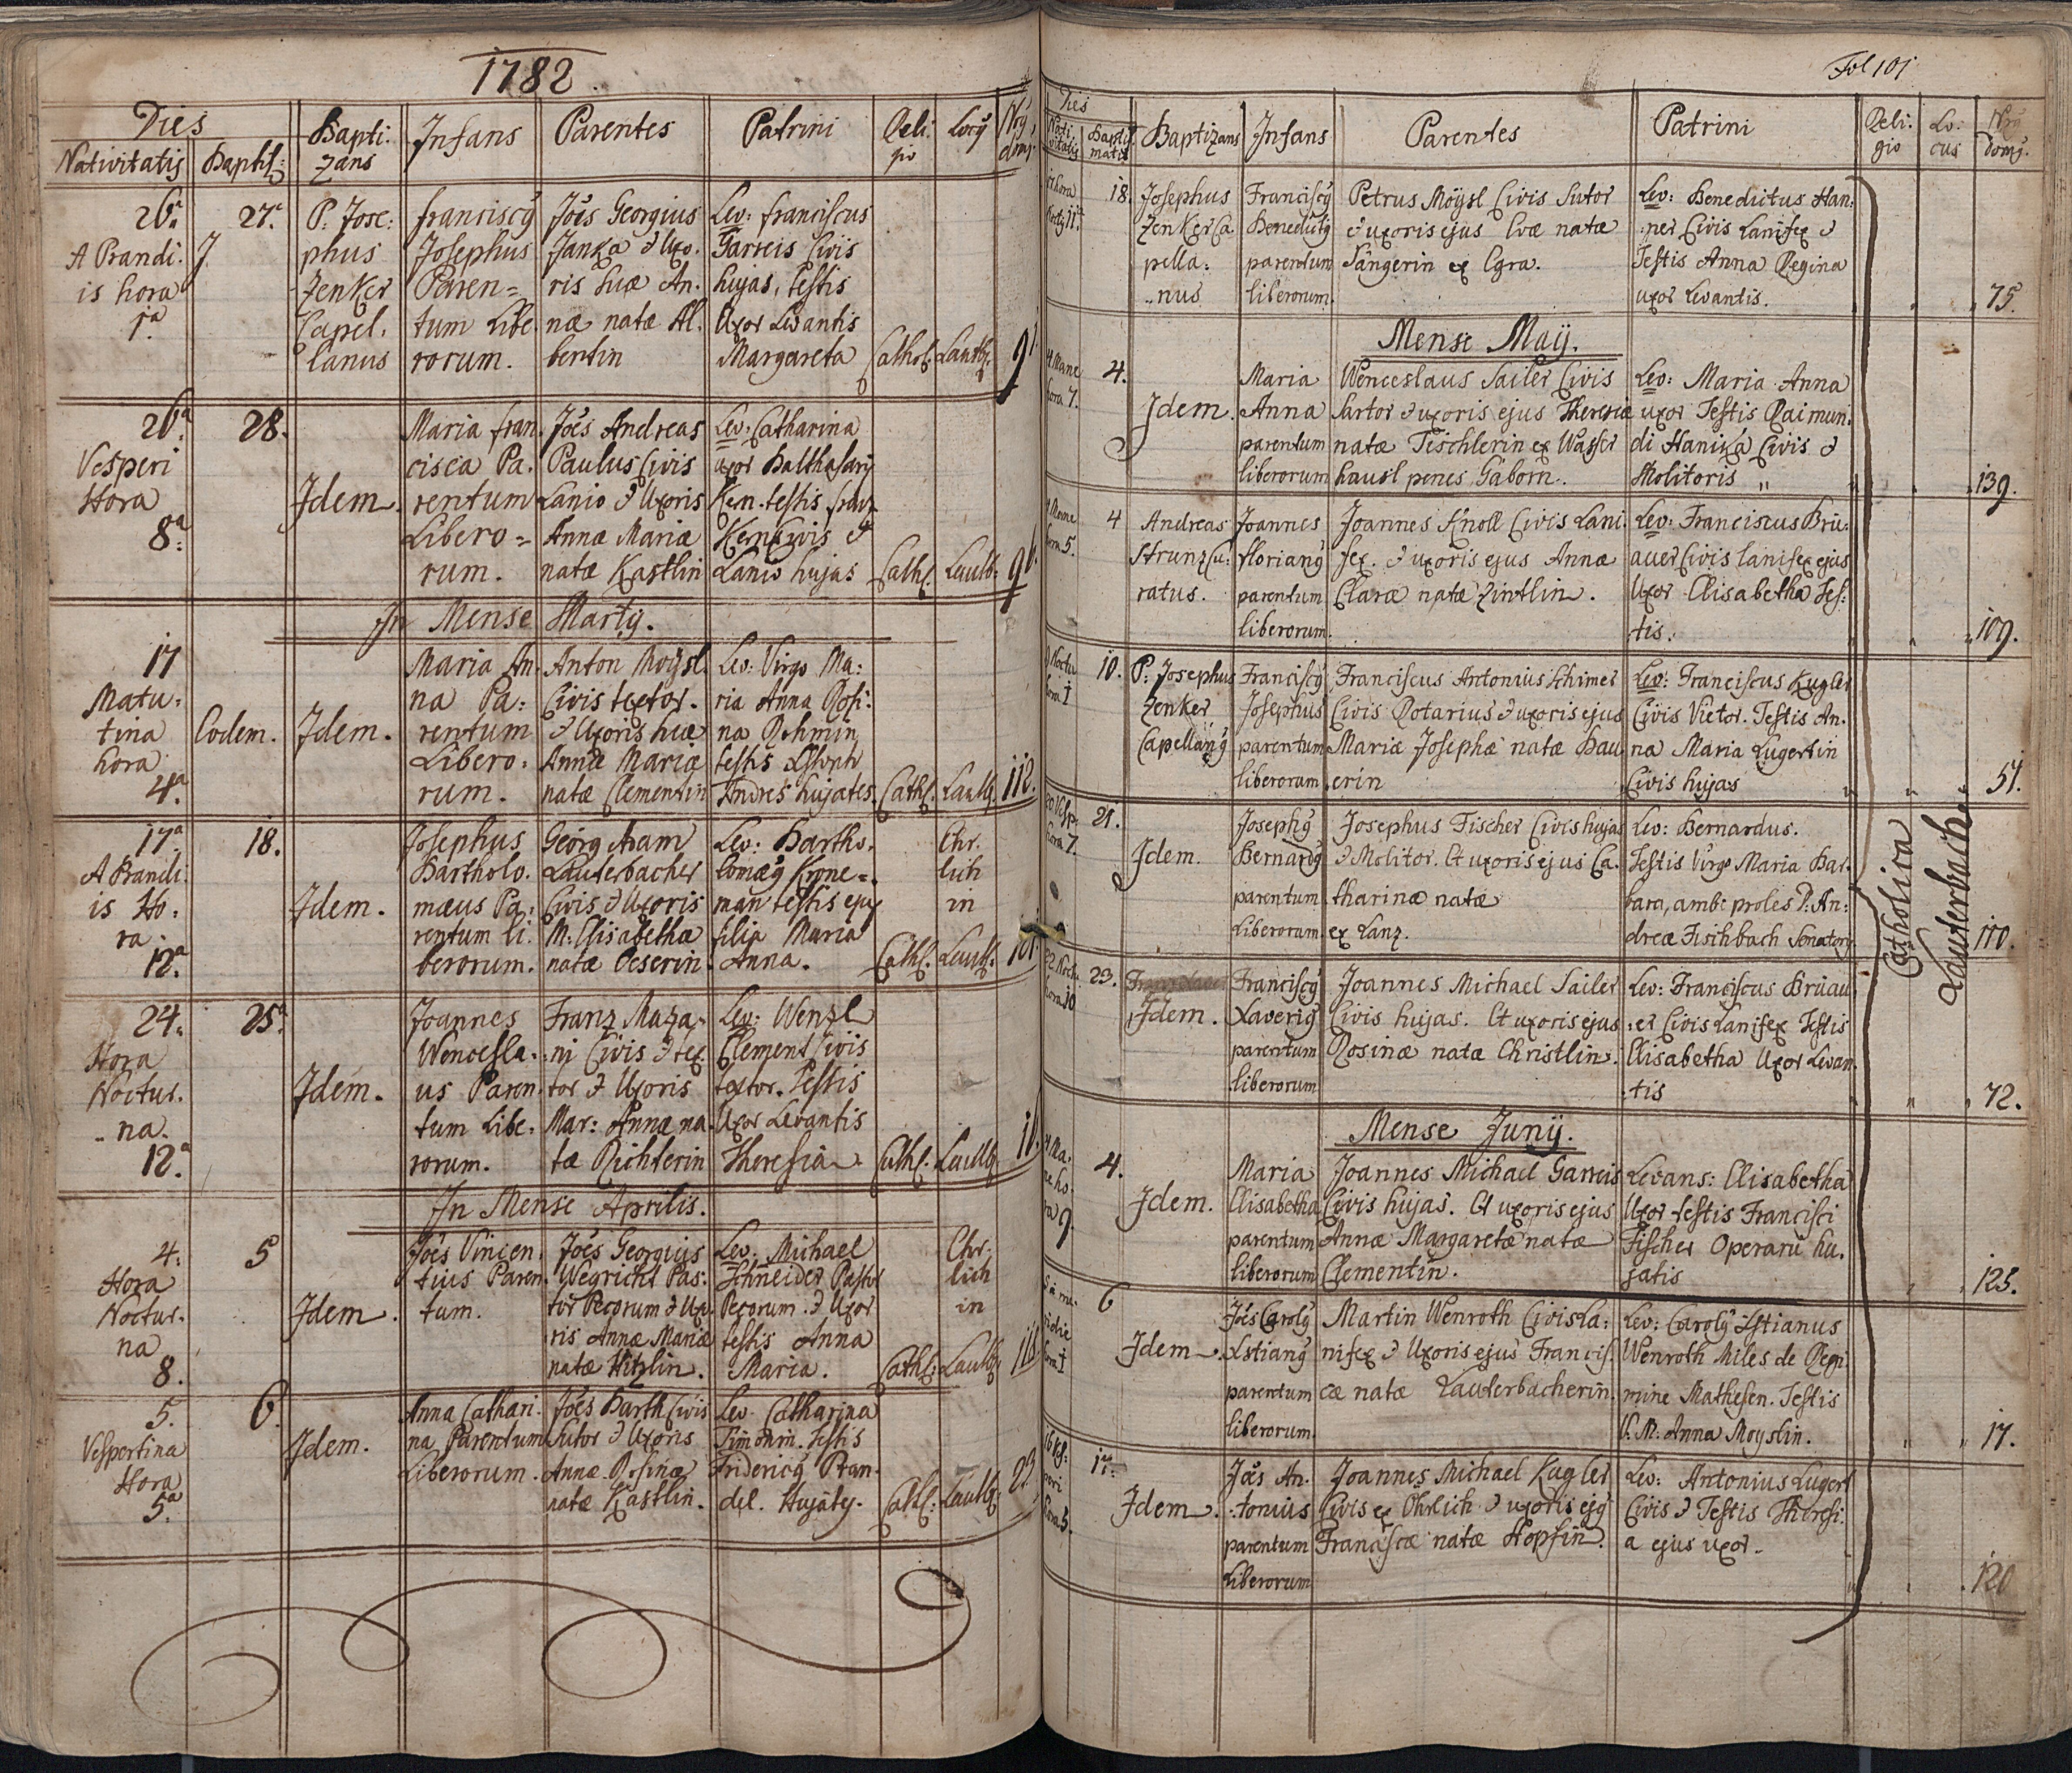 1782
Dies
Nativitatis Baptis:
Bapti.
zans
Infans
Parentes
Patrini
Reli.
gio
Locus
Nrus
domus
26a
A Prandi.
is hora
1a
27a
P: Jose:
phus
Zenker
Capel.
lanus
Franciscus
Josephus
Paren=
tum Libe.
rorum.
Jões Georgius
Janka & Uxo.
ris suæ An.
næ natæ Al.
bertin
Lev: Franciscus
Garreis Civis
hujas, testis
Uxor Levantis
Margareta
Cathol: Lautb:
26a
Vesperi
Hora
8a
28.
Idem.
Maria Fran.
cisca Pa.
rentum
Libero=
rum.
Jões Andreas
Paulus Civis
Lanio & Uxoris
Annæ Mariæ
natæ Kastlin
Lev: Catharina
uxor Balthasary
Kern. testis
Kern Civis &
Lanio hujas
Cath: Lautb:
In Mense Marty.
17
Matu:
tina
hora
4a
Eodem.
Idem.
Maria An.
na Pa:
rentum
Libero.
rum.
Anton Moysl.
Civis textor.
& Uxoris suæ
Annæ Mariæ
natæ Clementin
Lev: Virgo Ma:
ria Anna Rosi:
na
testis
Andres hujates.
Cath: Lautb: 112.
17a
A Prandi.
is Ho:
ra
12a
18.
Idem.
Josephus
Bartholo.
mæus Pa:
rentum Li.
berorum.
Georg Adam
Lauterbacher
Civis & Uxoris
M: Elisabethæ
natæ Oeserin.
Lev: Bartho.
lomæus Krone=
man testis ejus
filia Maria
Anna.
Chr.
lich
in
Cath: Lautb: 101
24.
Hora
Noctur.
na.
12a
25a
Idem.
Joannes
Wencesla.
us Paren.
tum Libe.
rorum.
Franz Maza.
ni Civis & tex.
tor & Uxoris
Mar: Annæ na.
tæ Richterin
Lev: Wenzl
Clement Civis
textor. Testis
Uxor Levantis
Theresia
Cath: Lautb:
In Mense Aprilis.
4.
Hora
Noctur.
na
8.
5
Idem.
Jões Vincen.
tius Paren.
tum.
Jões Georgius
Wegricht Pas.
tor Pecorum & Uxo.
ris Annæ Mariæ
natæ Hitzlin.
Lev: Michael
Schneider Pastor
Pecorum. & Uxor
testis Anna
Maria.
Chr.
lich
in
Cath: Lautb:
5.
Vespertina
Hora
5a
6.
Idem.
Anna Cathari.
na Parentum
Liberorum.
Jões Barth Civis
Sutor & Uxoris
Annæ Rosinæ
natæ Kastlin.
Lev: Catharina
Testis
Fridericus Pran.
del. Hujatis.
Cath: Lautb: 22
Fol 101
Dies
Nati.
vitatis
Baptis.
matis
Baptizans
Infans
Parentes
Patrini
Reli.
gio
Lo:
cus
Nrus
domus.
18.
Josephus
Zenker Ca
pella:
nus
Franciscus
Benedictus
parentum
liberorum.
Petrus Moysl Civis Sutor
& uxoris ejus Evæ natæ
Sangerin ex Egra.
Lev: Benedictus Han:
ner Civis Lanifex &
Testis Anna Regina
uxor Levantis.
75.
Mense Maij.
4 Mane
hora 7.
4.
Idem.
Maria
Anna
parentum
liberorum
Wenceslaus Sailer Civis
Sartor & uxoris ejus Theresiæ
natæ Tischlerin ex Wasser
hausl penes Gaborn.
Lev: Maria Anna
uxor Testis Raimun.
di Hanika Civis &
Molitoris
139.
4 Mane
hora 5.
4
Andreas
Strunz Cu:
ratus.
Joannes
Florianus
parentum
liberorum.
Joannes Knoll Civis Lani.
fex. & uxoris ejus Annæ
Claræ natæ Zintlin.
Lev: Franciscus Brü:
auer Civis lanifex ejus
Uxor Elisabetha Tes:
tis.
109.
9 Noctu
hora 1
10.
P: Josephus
Zenker
Capellanus
Franciscus
Josephus
parentum
liberorum.
Franciscus Antonius Schimer
Civis Rotarius & uxoris ejus
Mariæ Josephæ natæ Bau
erin
Lev: Franciscus Kugler
Civis Vietor. Testis An.
na Maria Lugertin
Civis hujas
51.
20 Vesp.
hora 7.
21.
Idem.
Josephus
Bernardus
parentum
Liberorum.
Josephus Fischer Civis hujas
& Molitor. Et uxoris ejus Ca.
tharinæ natæ
ex Lanz.
Lev: Bernardus.
Testis Virgo Maria Bar.
bara, ambe proles D: An:
dreæ Fischbach Senatoris
110.
22 Noctu
hora 10
23.
Idem.
Franciscus
Xaverius
parentum
liberorum
Joannes Michael Sailer
Civis hujas. Et uxoris ejus
Rosinæ natæ Christlin.
Lev: Franciscus Brüau:
er Civis Lanifex Testis
Elisabetha Uxor Levan.
tis
72.
Catholica
Lauterbach
Mense Junij.
4 Ma.
ne ho.
ra 9.
4.
Idem.
Maria
Elisabetha
parentum
liberorum
Joannes Michael Garreis
Civis hujas. Et uxoris ejus
Annæ Margaretæ natæ
Clementin.
Levans: Elisabetha
Uxor testis Francisci
Fischer Operarii hu.
jatis
125.
5 a me.
ridie
hora 1
6
Idem.
Jões Carolus
Xstianus
parentum
liberorum.
Martin Wenroth Civis La:
nifex & Uxoris ejus Francis.
cæ natæ Lauterbacherin.
Lev: Carolus Xstianus
Wenroth Miles de Regi
mine Mathesen. Testis
V. M: Anna Moyslin.
17.
16 Ves.
peri
hora 5.
17.
Idem.
Jões An.
tonius
parentum
Liberorum
Joannes Michael Kugler
Civis ex Öhrlich & uxoris ejus
Franciscæ natæ Hopfin.
Lev: Antonius Lugert
Civis & Testis Theresi:
a ejus uxor.
120